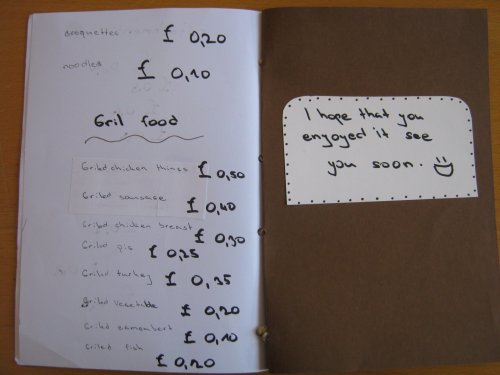 croquettes £ 0,20
noodles £ 0,10
Gril food
Grilled chicken things £ 0,50
Grilled sausage £ 0,40
Grilled chicken breast £ 0,30
Grilled pig £ 0,25
Grilled turkey £ 0,35
Grilled vegetable £ 0,20
Grilled camembert £ 0,10
Grilled fish £ 0,20
I hope that you
engoyed it see
you soon.